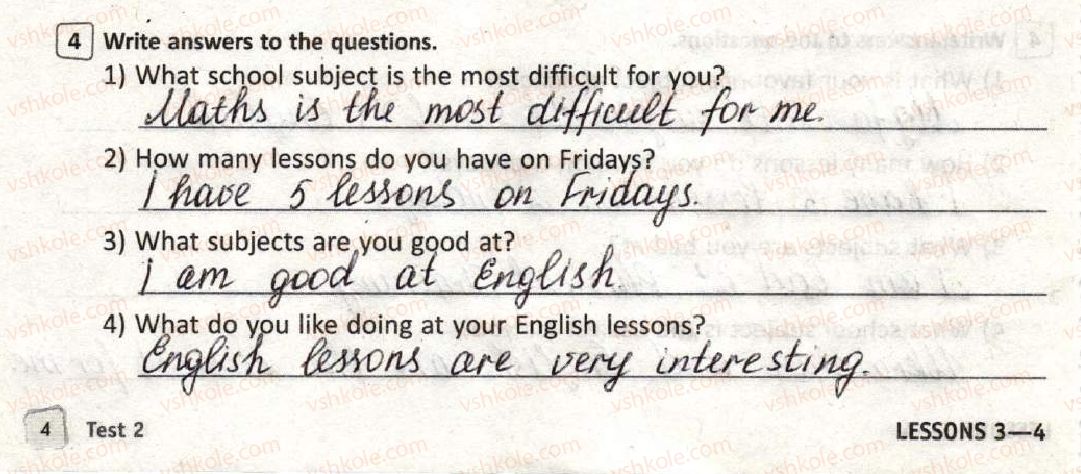 4 Write answers to the questions.
1) What school subject is the most difficult for you?
Maths is the most difficult for me.
2) How many lessons do you have on Fridays?
I have 5 lessons on Fridays.
3) What subjects are you good at?
I am good at English
4) What do you like doing at your English lessons?
English lessons are very interesting.
4 Test 2 LESSONS 3—4